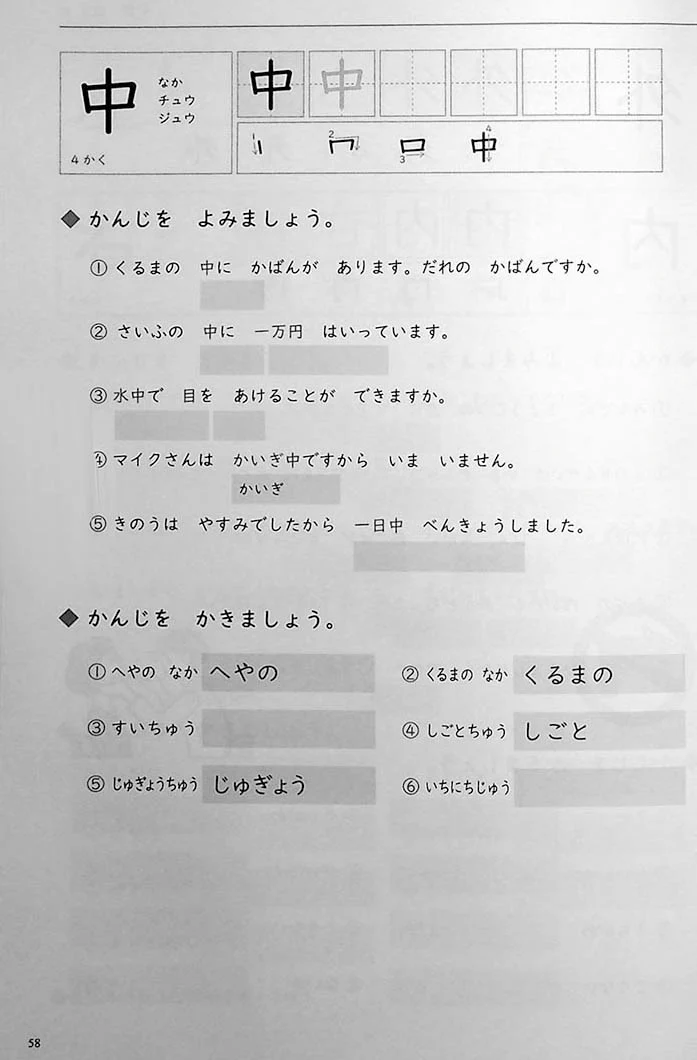 中
なか
チュウ
ジュウ
4かく
中 中
1 2 3 4
◆ かんじを よみましょう。
① くるまの 中に かばんが あります。だれの かばんですか。
② さいふの 中に 一万円 はいっています。
③ 水中で 目を あけることが できますか。
④ マイクさんは かいぎ中ですから いま いません。
かいぎ
⑤ きのうは やすみでしたから 一日中 べんきょうしました。
◆ かんじを かきましょう。
① へやの なか へやの
② くるまの なか くるまの
③ すいちゅう
④ しごとちゅう しごと
⑤ じゅぎょうちゅう じゅぎょう
⑥ いちにちじゅう
58